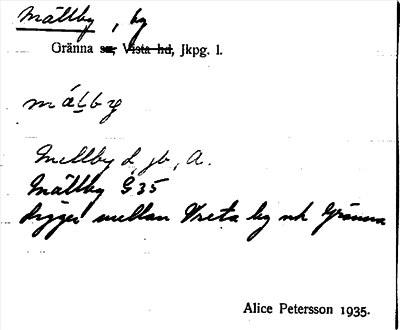 Mällby, by
Gränna sn, Vista hd, Jkpg. l.
mälby
Mellby d, jb, A.
Mällby G 35
ligger mellan Vreta by och Gränna
Alice Petersson 1935.